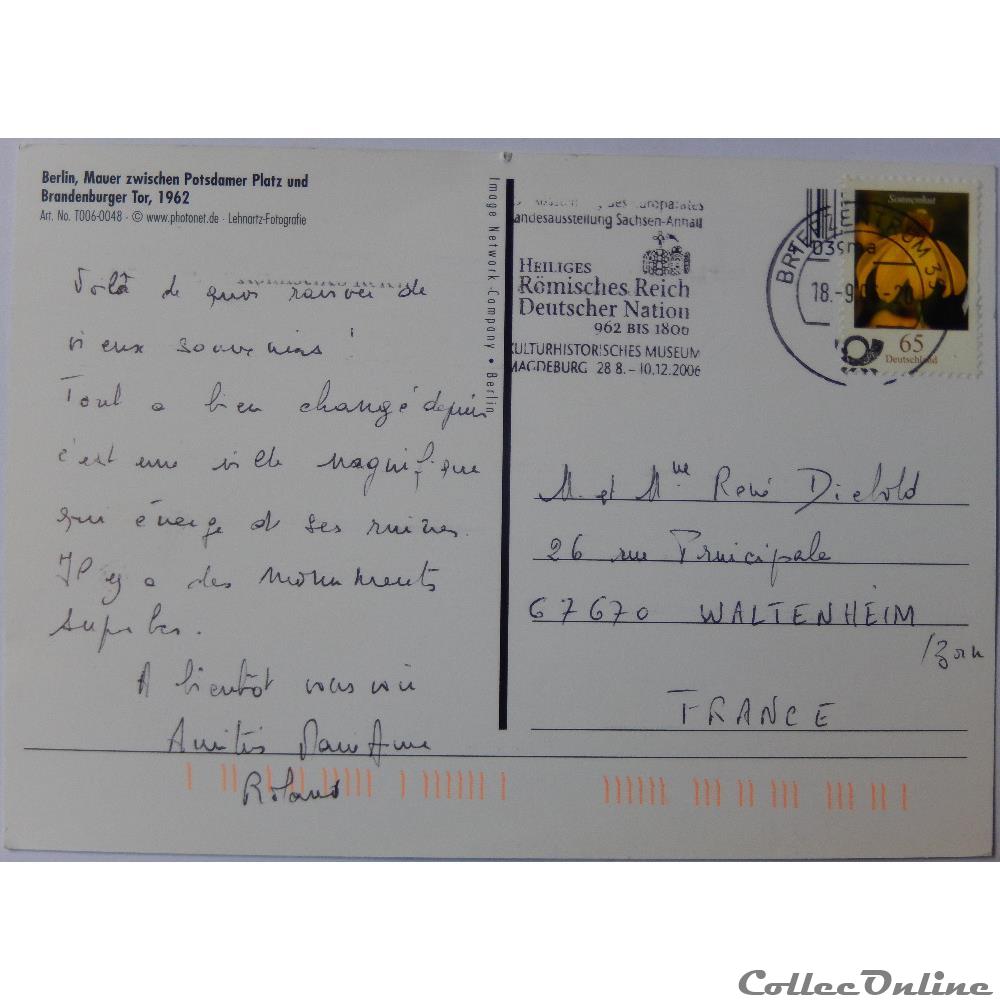 Berlin, Mauer zwischen Potsdamer Platz und
Brandenburger Tor, 1962
Art. No. T006-0048 · © www.photonet.de · Lehnartz-Fotografie
Voilà de quoi raviver de
vieux souvenirs !
Tout a bien changé depuis
c'est une ville magnifique
qui émerge de ses ruines.
Il y a des monuments
superbes.
A bientôt vous voir
Amitiés Marie Anne
Roland
Image Network Company • Berlin
des Europarates
Landesausstellung Sachsen-Anhalt
HEILIGES
RÖMISCHES REICH
DEUTSCHER NATION
962 BIS 1806
KULTURHISTORISCHES MUSEUM
MAGDEBURG 28 8. – 10.12.2006
BRIEFZENTRUM 39
039ma
18.-9.06-20
Sonnenhut
65
Deutschland
M. et Mme René Diebold
26 rue Principale
67670 WALTENHEIM
/Zorn
FRANCE
CollecOnline